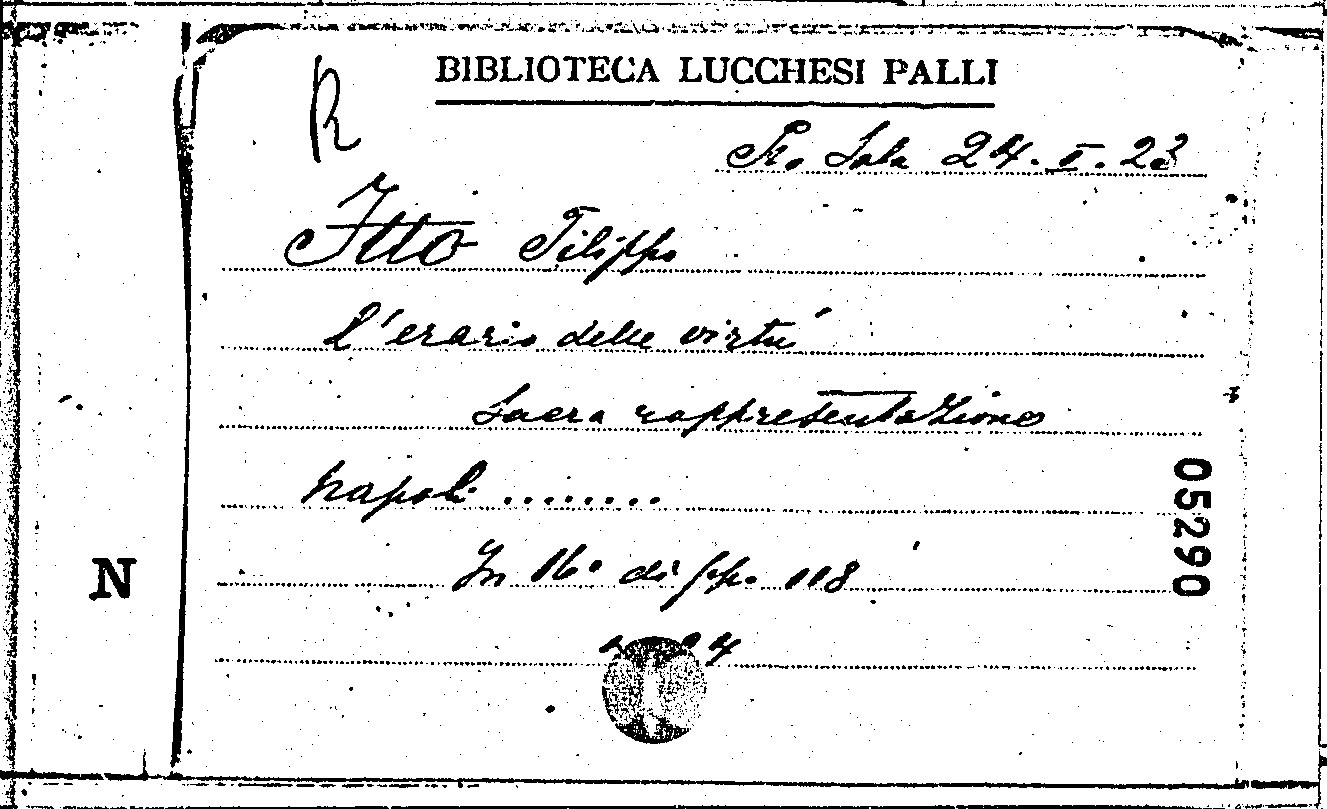 BIBLIOTECA LUCCHESI PALLI
R
Sala 24. I. 23
Itto Filippo
L'erario delle virtù
Sacra rappresentazione
Napoli ........
In 16° di pp. 118
05290
N